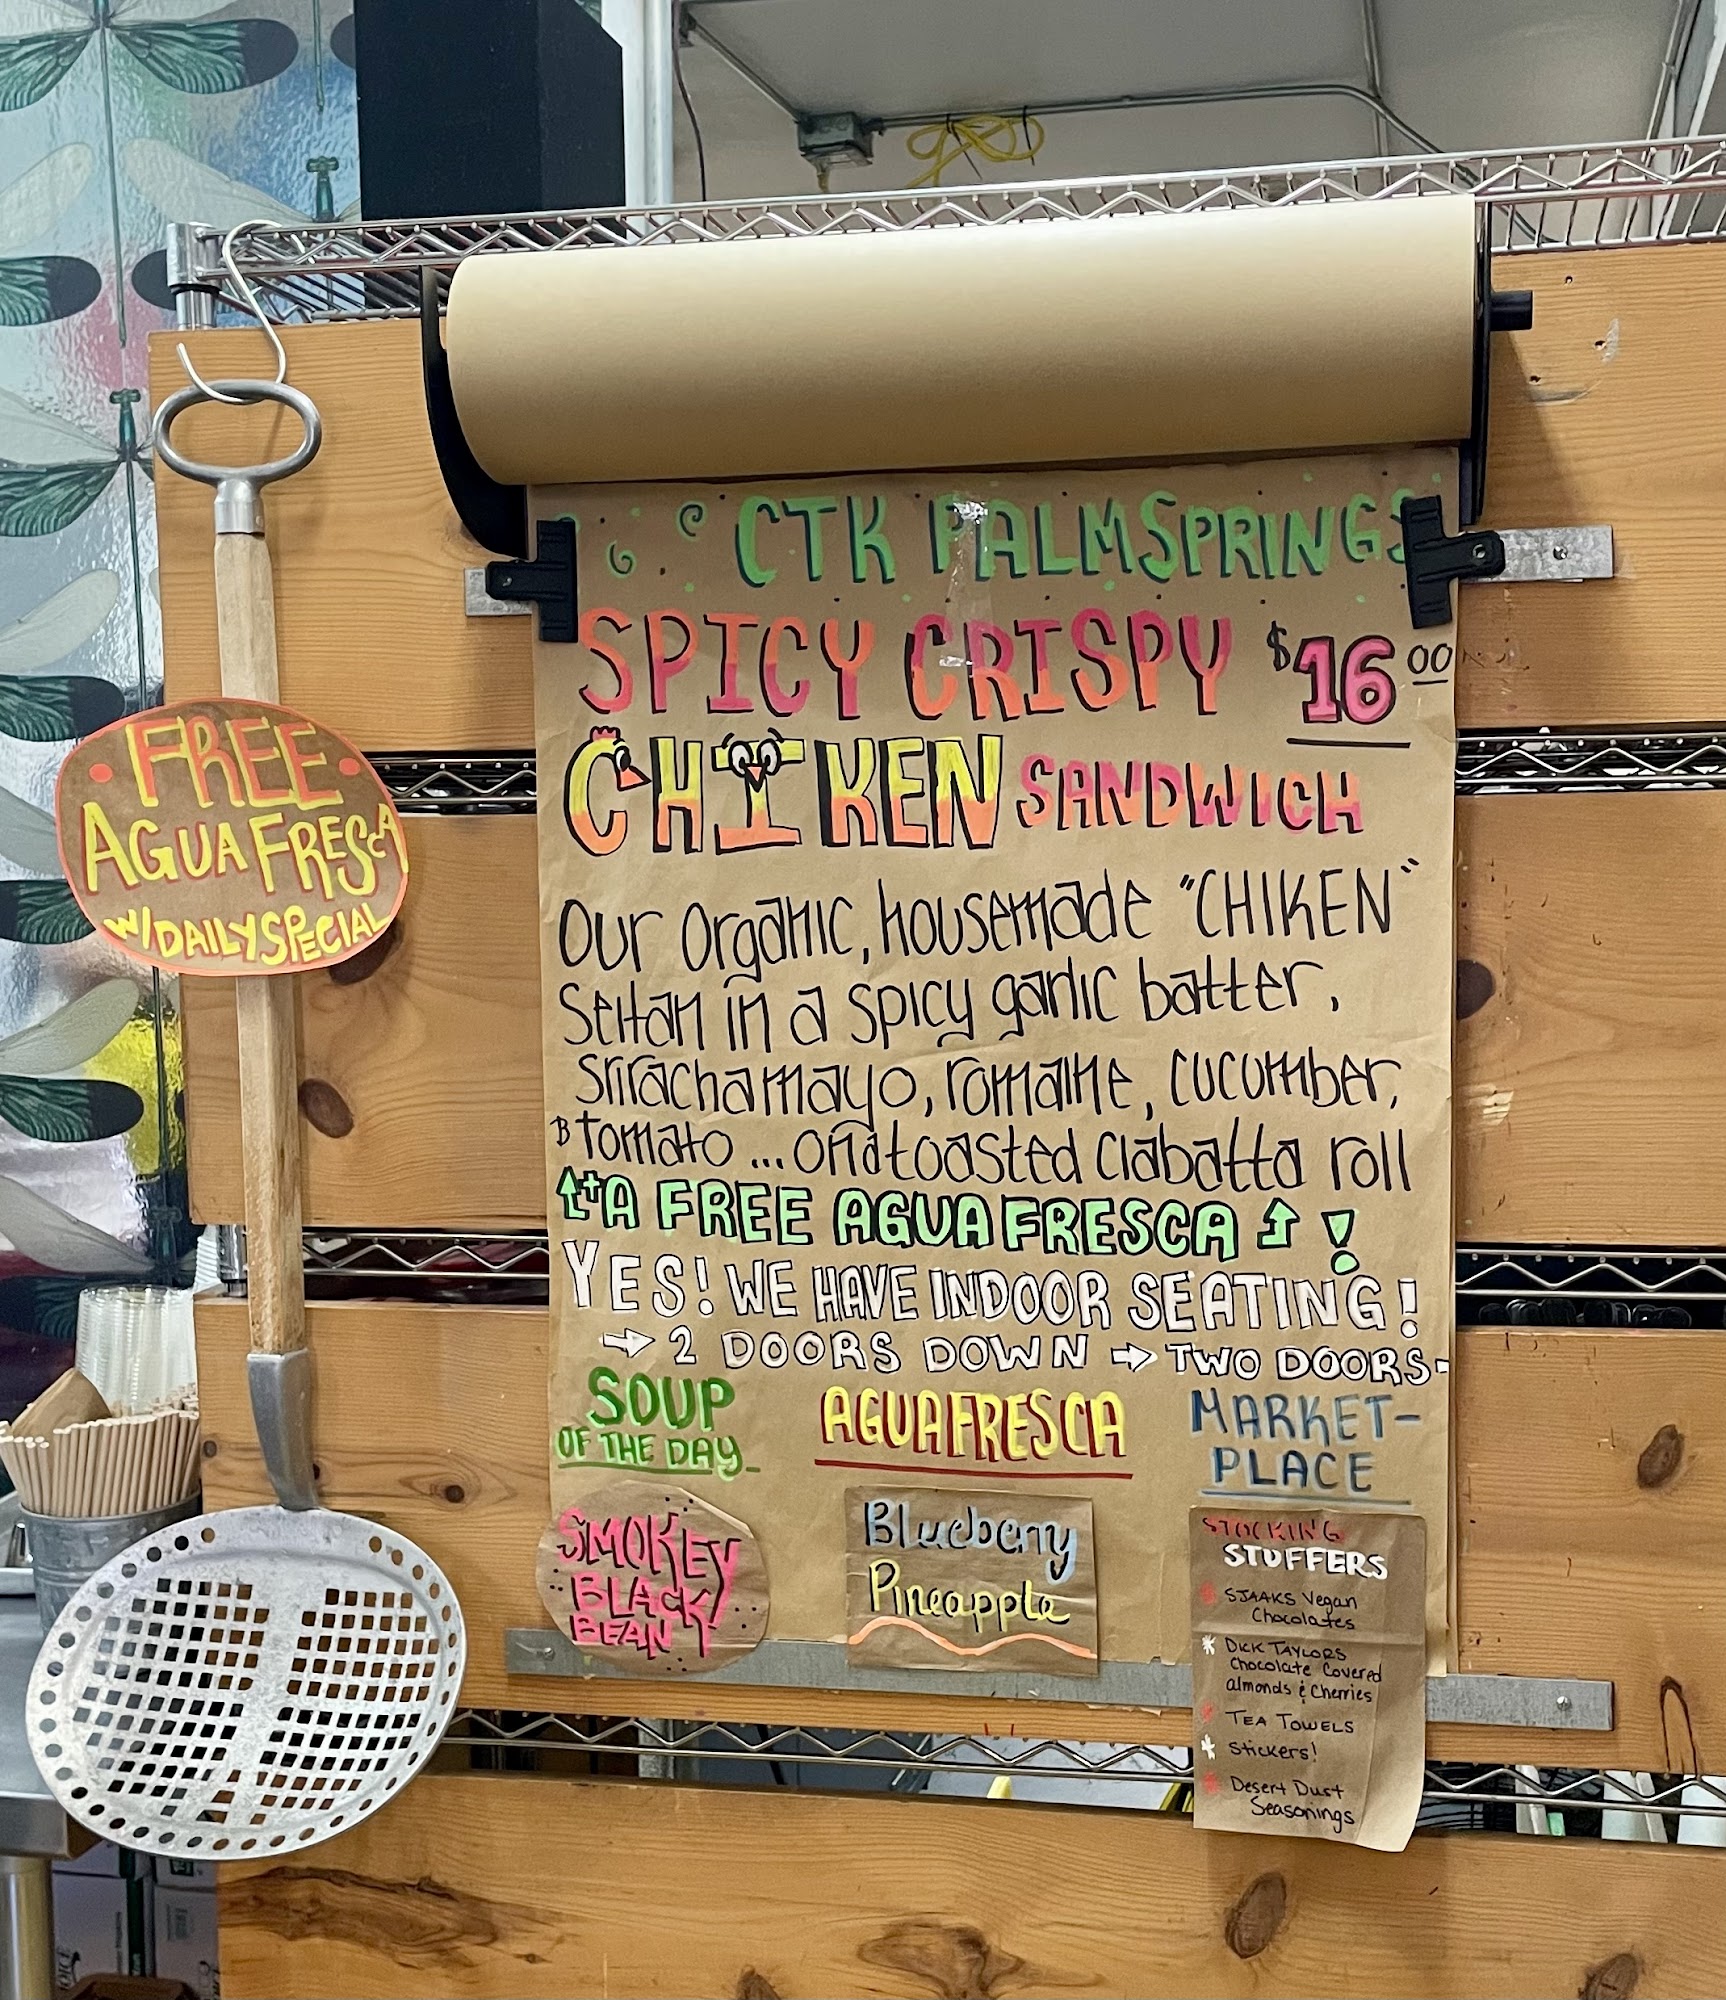 CTK PALMSPRINGS
SPICY CRISPY $16 00
CHIKEN SANDWICH
Our organic, housemade "CHIKEN"
Seitan in a spicy garlic batter,
Srirachamayo, romaine, cucumber,
tomato ... on a toasted ciabatta roll
+ A FREE AGUA FRESCA !
YES! WE HAVE INDOOR SEATING!
→ 2 DOORS DOWN → TWO DOORS-
SOUP
OF THE DAY
SMOKEY
BLACK
BEAN
AGUA FRESCA
Blueberry
Pineapple
MARKET-
PLACE
STOCKING
STUFFERS
SJAAKS Vegan
Chocolates
DICK TAYLORS
Chocolate Covered
almonds & Cherries
TEA TOWELS
Stickers!
Desert Dust
Seasonings
FREE
AGUA FRESCA
W/DAILY SPECIAL